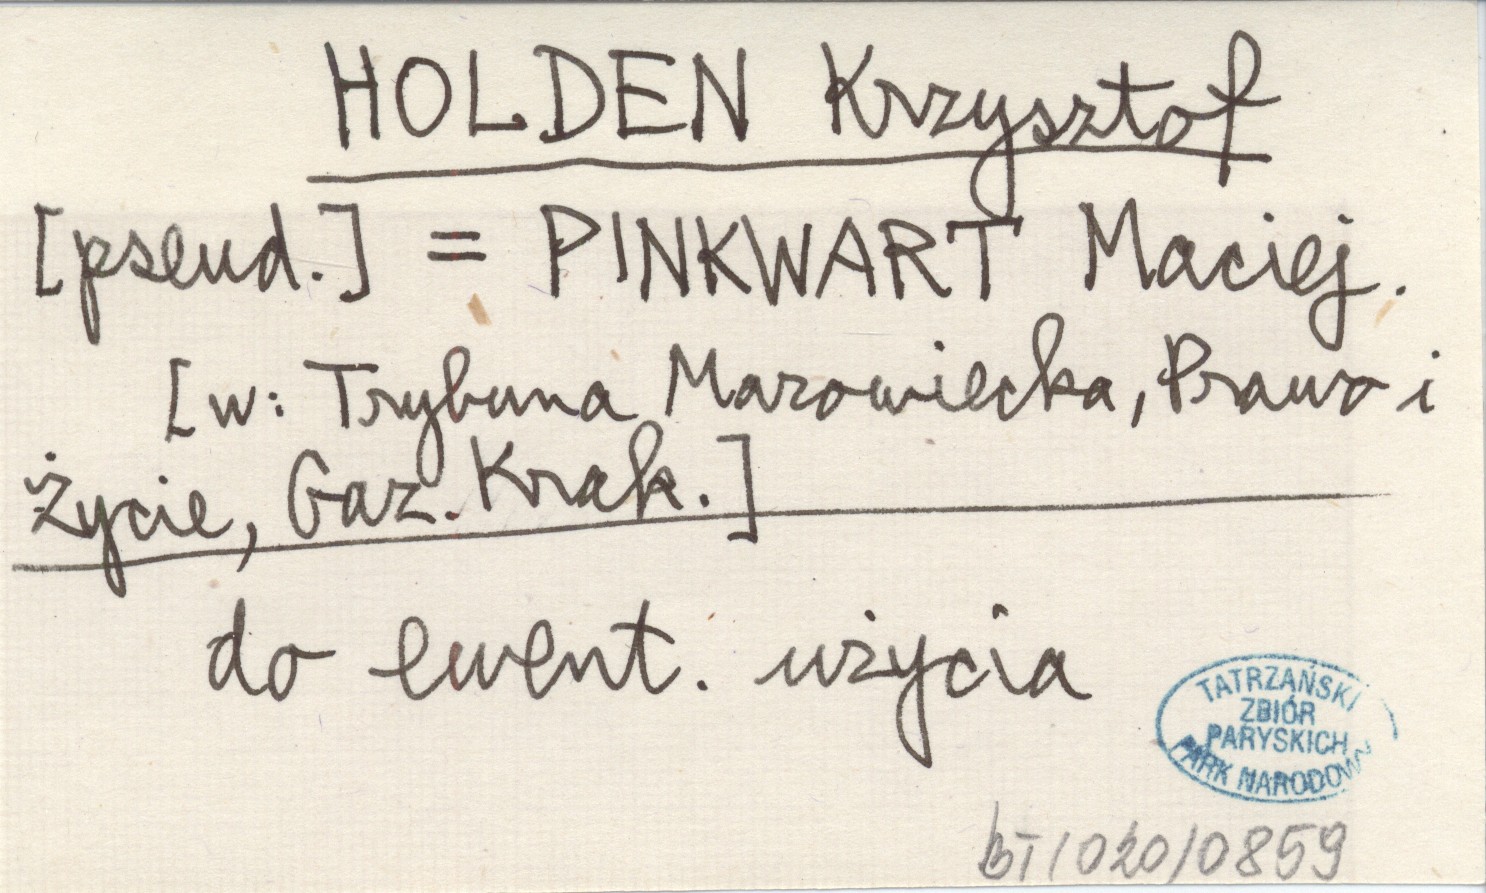 HOLDEN Krzysztof
[pseud.] = PINKWART Maciej.
[w: Trybuna Mazowiecka, Prawo i
Życie, Gaz. Krak.]
do ewent. użycia
TATRZAŃSKI
ZBIÓR
PARYSKICH
PARK NARODOWY
BT/020/0859